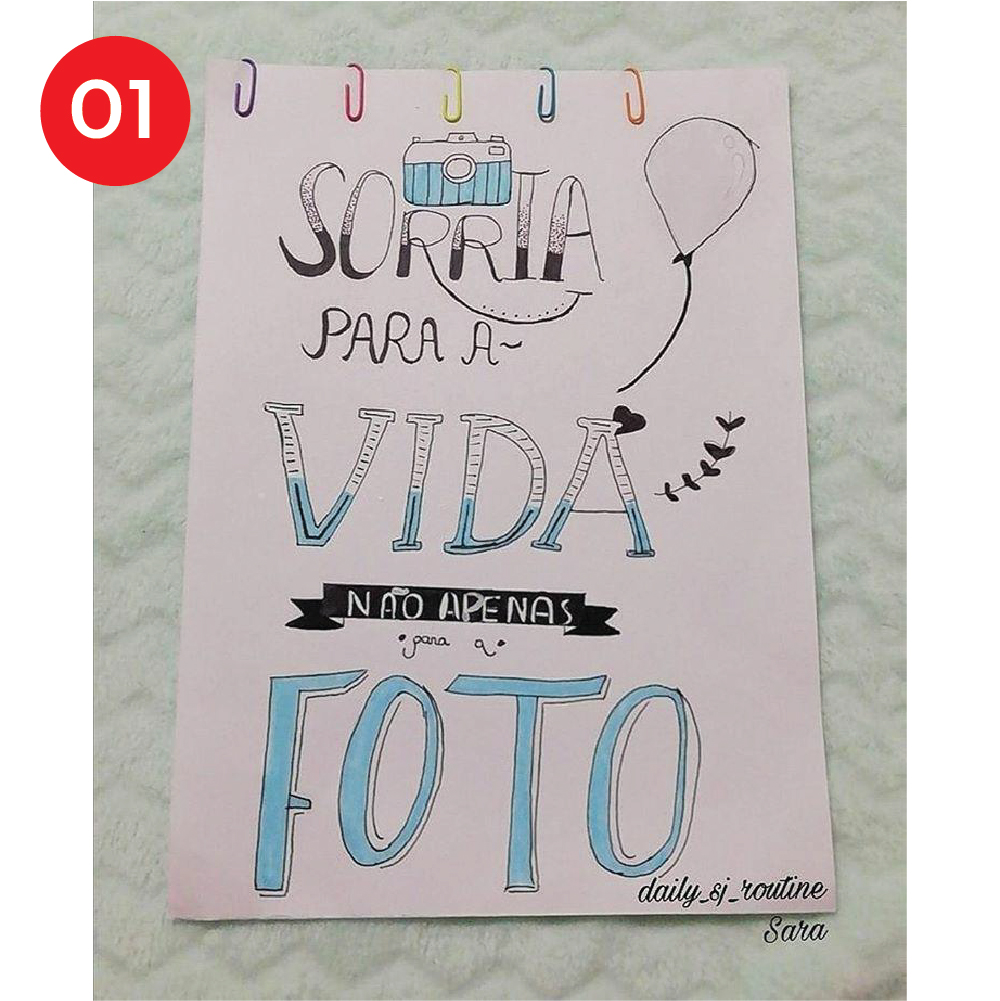 01
SORRIA
PARA A~
VIDA
NÃO APENAS
para a
FOTO
daily_sj_routine
Sara